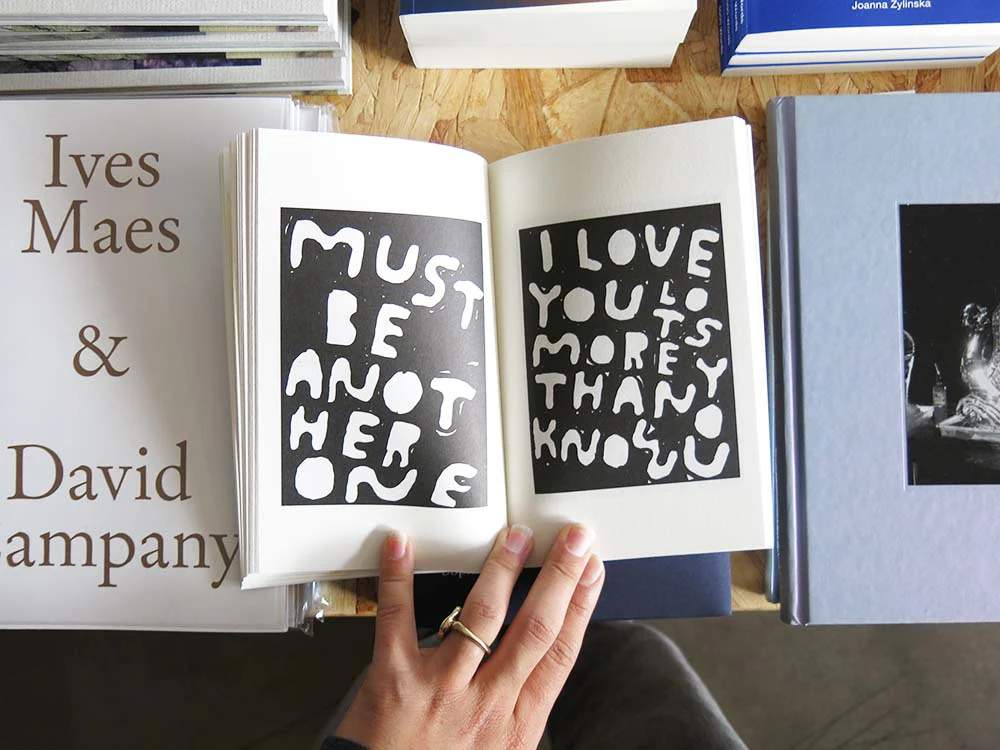 Joanna Zylinska
Ives
Maes
&
David
Campany
MUST
BE
ANOT
HER
ONE
I LOVE
YOU LO
TS
MORE
THAN
YOU
KNOW